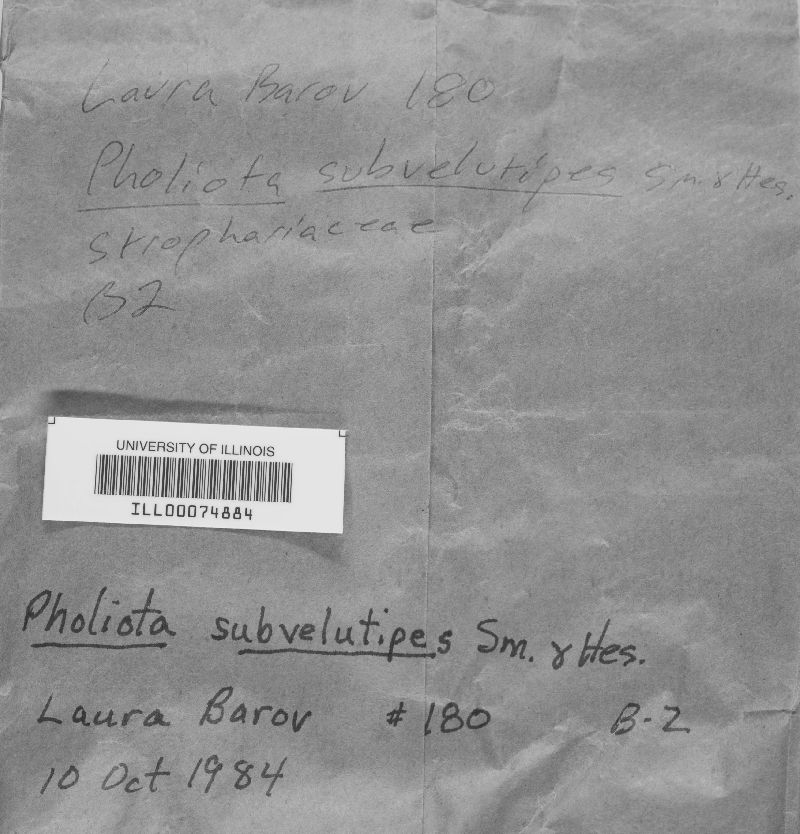 Laura Barov 180
Pholiota subvelutipes Sm. & Hes.
Strophariaceae
B2
UNIVERSITY OF ILLINOIS
ILL00074884
Pholiota subvelutipes Sm. & Hes.
Laura Barov # 180 B-2
10 Oct 1984